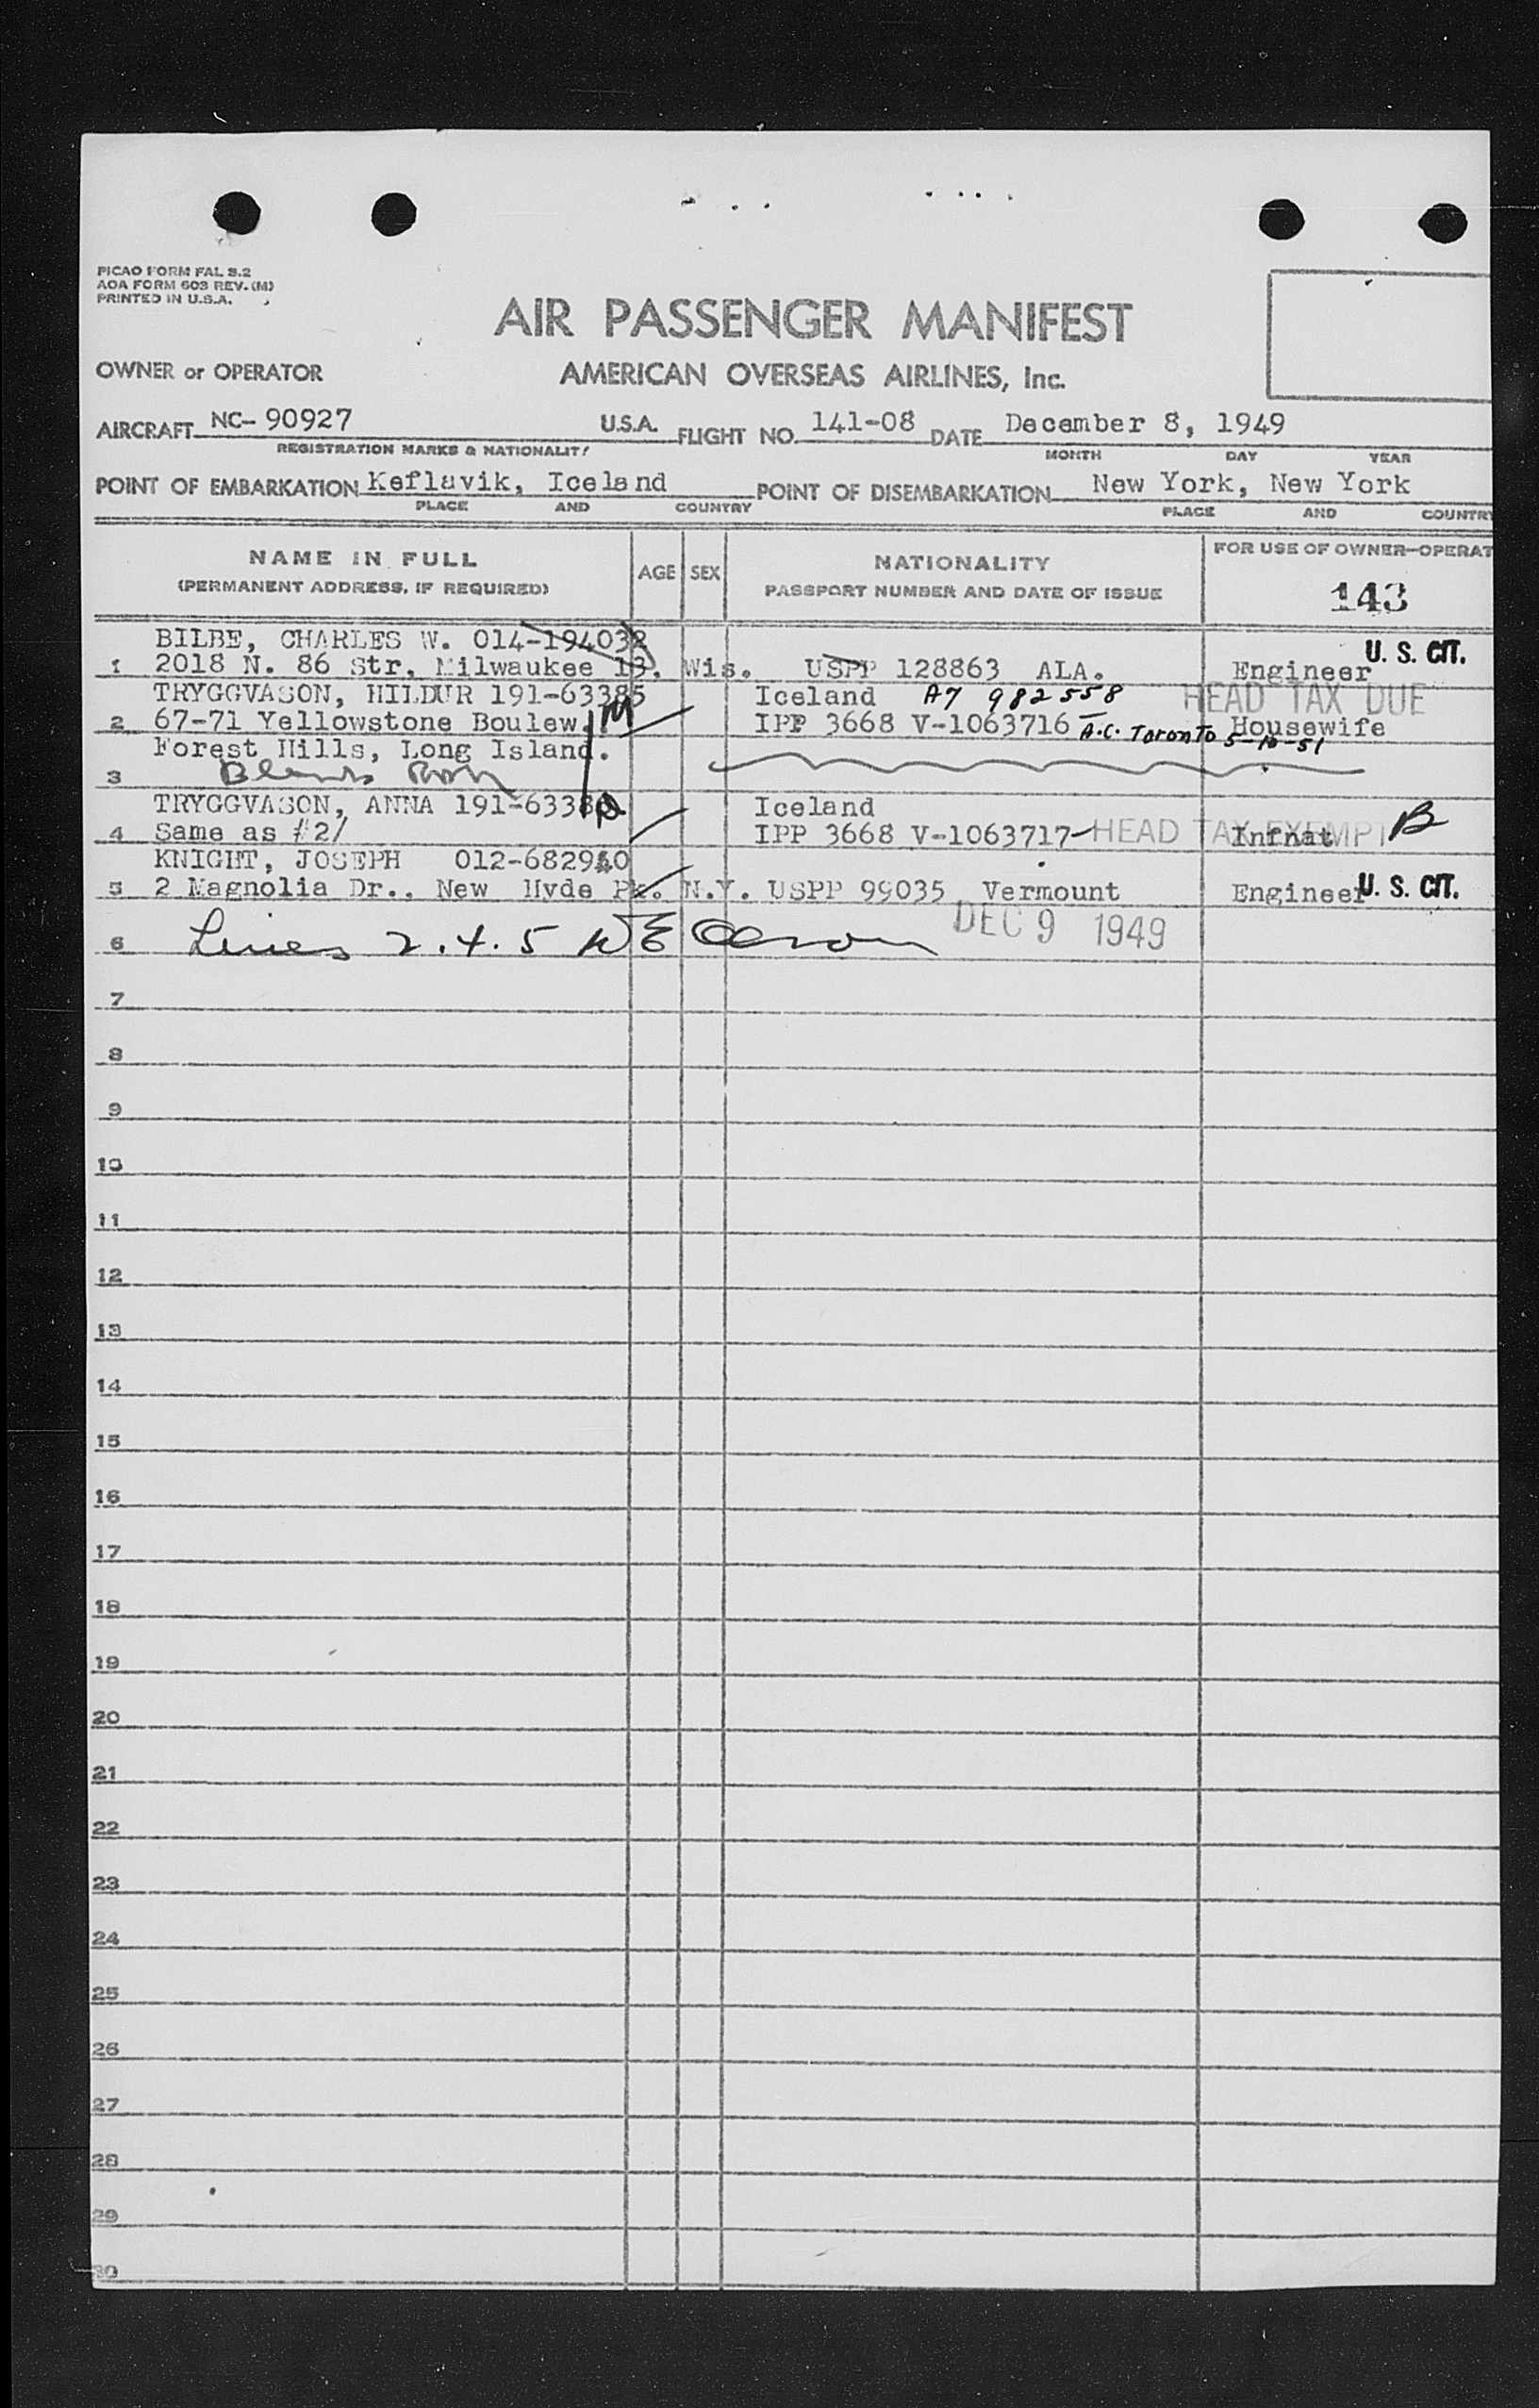 PICAO FORM FAL S.2
AOA FORM 603 REV. (M)
PRINTED IN U.S.A.
AIR PASSENGER MANIFEST
OWNER or OPERATOR AMERICAN OVERSEAS AIRLINES, Inc.
AIRCRAFT NC-90927 U.S.A. FLIGHT NO. 141-08 DATE December 8, 1949
REGISTRATION MARKS & NATIONALITY MONTH DAY YEAR
POINT OF EMBARKATION Keflavik, Iceland POINT OF DISEMBARKATION New York, New York
PLACE AND COUNTRY PLACE AND COUNTR
NAME IN FULL AGE SEX NATIONALITY FOR USE OF OWNER-OPERAT
(PERMANENT ADDRESS, IF REQUIRED) PASSPORT NUMBER AND DATE OF ISSUE 143
BILBE, CHARLES W. 014-194032 U. S. CIT.
1 2018 N. 86 Str, Milwaukee 13, Wis. USPP 128863 ALA. Engineer
TRYGGVASON, HILDUR 191-63385 Iceland A7 982558 HEAD TAX DUE
2 67-71 Yellowstone Boulew. M IPP 3668 V-1063716 A.C. Toronto 5-10-51 Housewife
Forest Hills, Long Island.
3
TRYGGVASON, ANNA 191-6338 Iceland
4 Same as #2/ IPP 3668 V-1063717 HEAD TAX EXEMPT Infnat B
KNIGHT, JOSEPH 012-682940
5 2 Magnolia Dr., New Hyde Pk. N.Y. USPP 99035 Vermount Engineer U. S. CIT.
6 Lines 2.4.5 DEC 9 1949
7
8
9
10
11
12
13
14
15
16
17
18
19
20
21
22
23
24
25
26
27
28
29
30